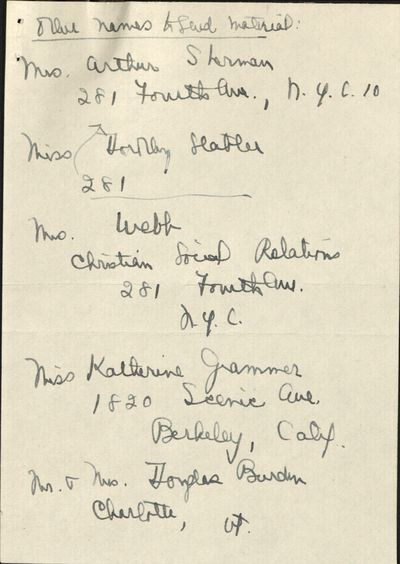 Other names to send material:
Mrs. Arthur Sherman
281 Fourth Ave., N.Y.C. 10
Miss Dorothy Stabler
281
Mrs. Webb
Christian Social Relations
281 Fourth Ave.
N.Y.C.
Miss Katherine Grammer
1820 Scenic Ave.
Berkeley, Calif.
Mr. & Mrs. Douglas Burden
Charlotte, Vt.